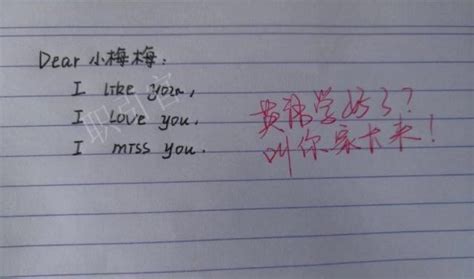 Dear 小梅梅:
I like you,
I love you.
I miss you.
英语学好了?
叫你家大来!
职引客